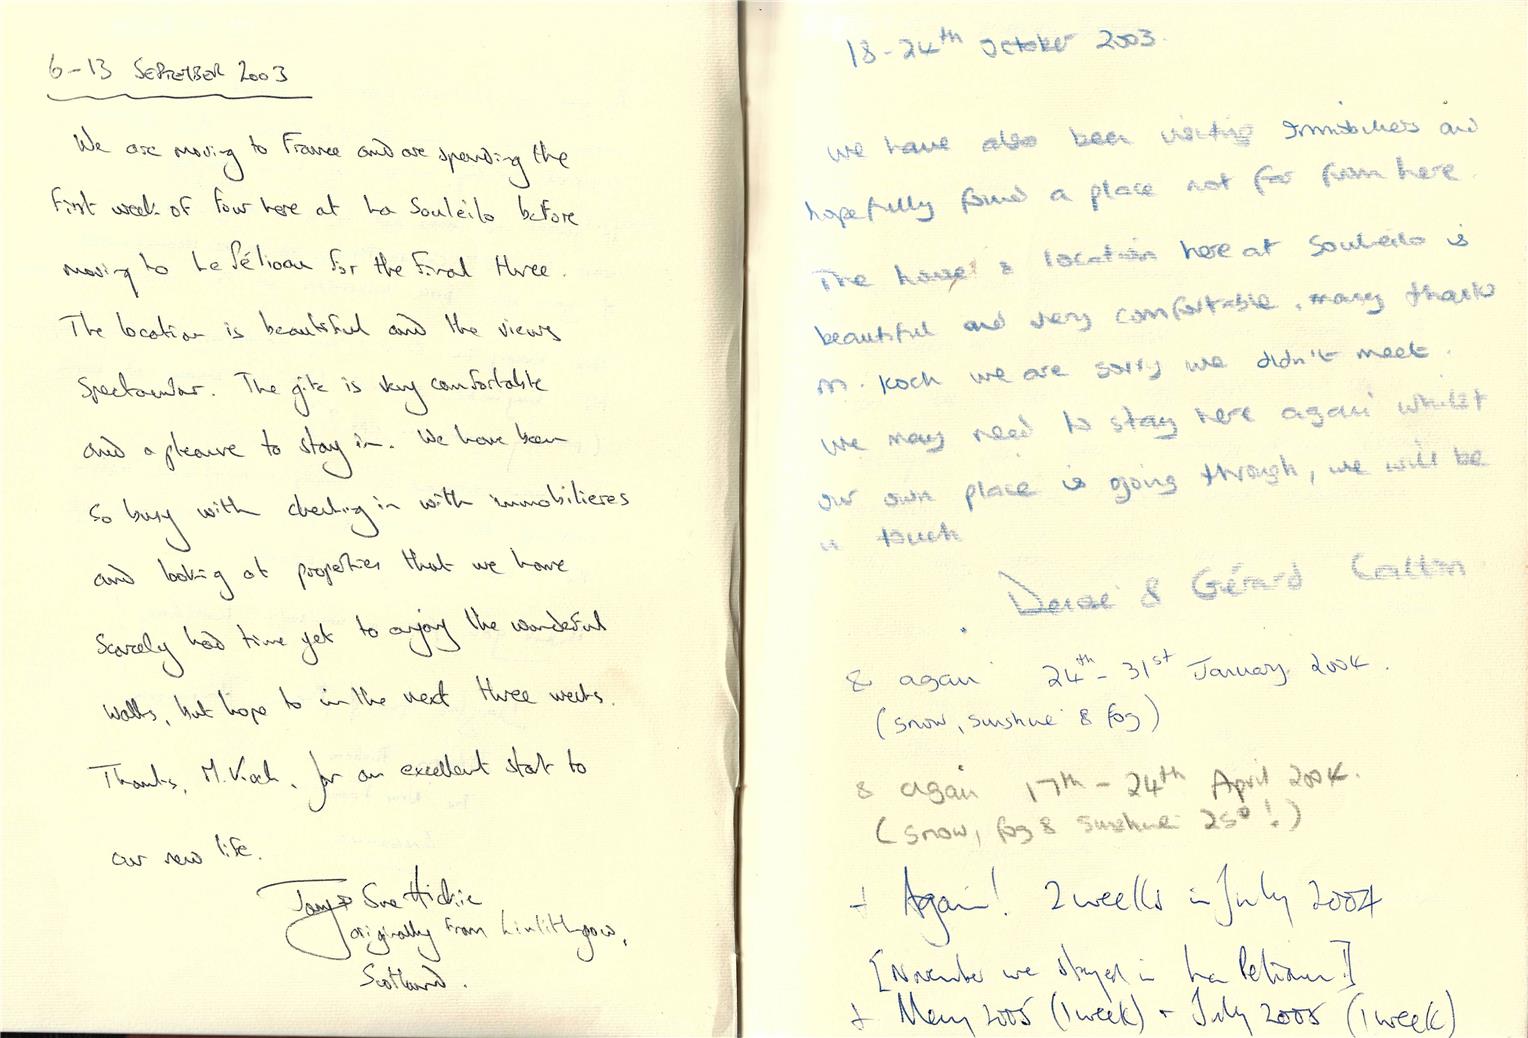 6-13 SEPTEMBER 2003
We are moving to France and are spending the
first week of four here at La Souléilo before
moving to Le Pélioau for the final three.
The location is beautiful and the views
spectacular. The gîte is very comfortable
and a pleasure to stay in. We have been
so busy with checking in with immobilieres
and looking at properties that we have
scarcely had time yet to enjoy the wonderful
walks, but hope to in the next three weeks.
Thanks, M. Koch, for an excellent start to
our new life.
Tony & Sue Hickie
originally from Linlithgow,
Scotland.
18-24th October 2003.
we have also been visiting Immobiliers and
hopefully found a place not far from here.
The house & location here at Souleilo is
beautiful and very comfortable. many thanks
M. Koch we are sorry we didn't meet.
we may need to stay here again whilst
our own place is going through, we will be
in touch
& Gérard
& again 24th-31st January 2004.
(snow, sunshine & fog)
& again 17th-24th April 2004.
(snow, fog & sunshine 25°!)
+ Again! 2 weeks in July 2004
[November we stayed in La Peliaou!]
+ May 2005 (1 week) + July 2005 (1 week)